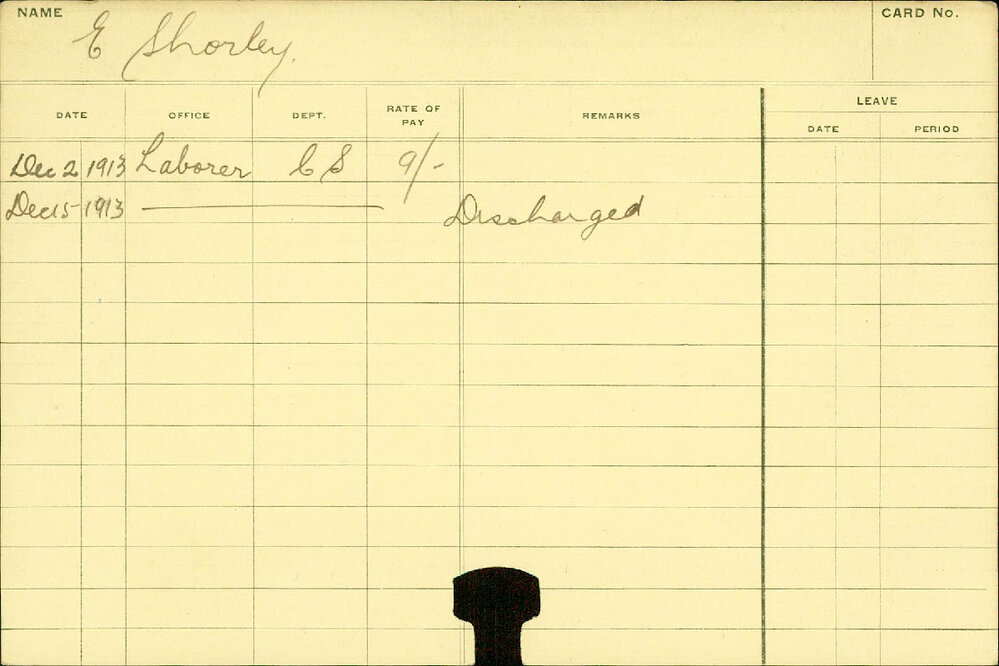 NAME E Shorley. CARD No.
LEAVE
DATE OFFICE DEPT. RATE OF PAY REMARKS DATE PERIOD
Dec 2 1913 Laborer C S 9/-
Dec 15 1913 ——— Discharged